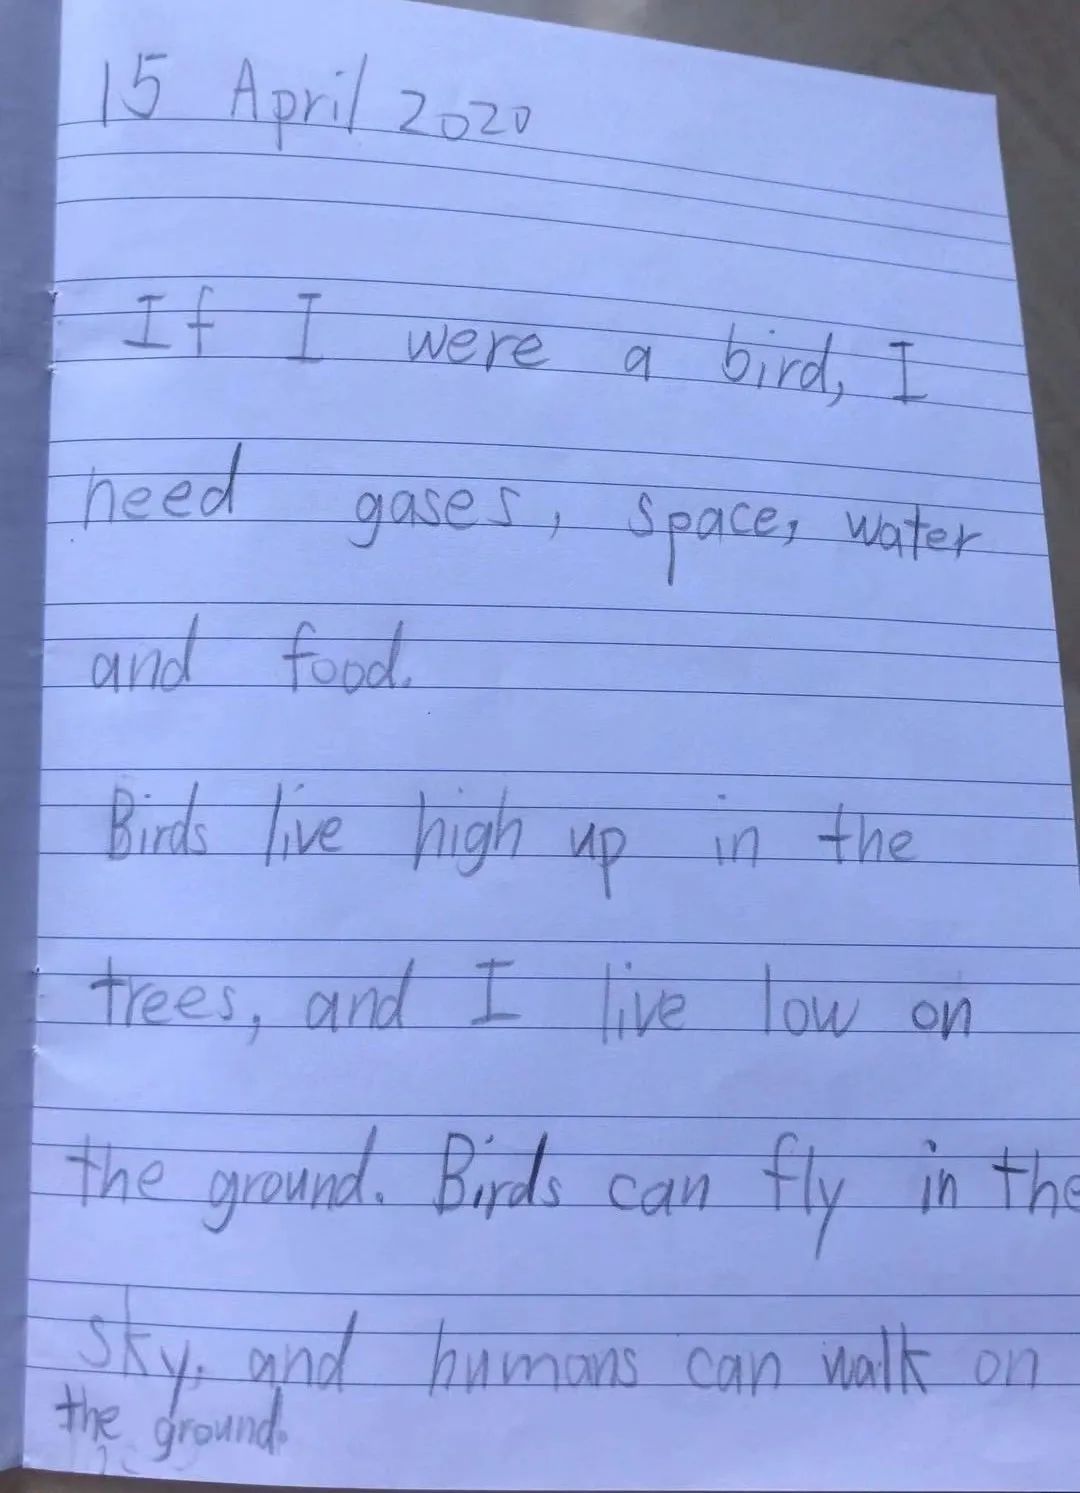 15 April 2020
If I were a bird, I
need gases, space, water
and food.
Birds live high up in the
trees, and I live low on
the ground. Birds can fly in the
sky, and humans can walk on
the ground.